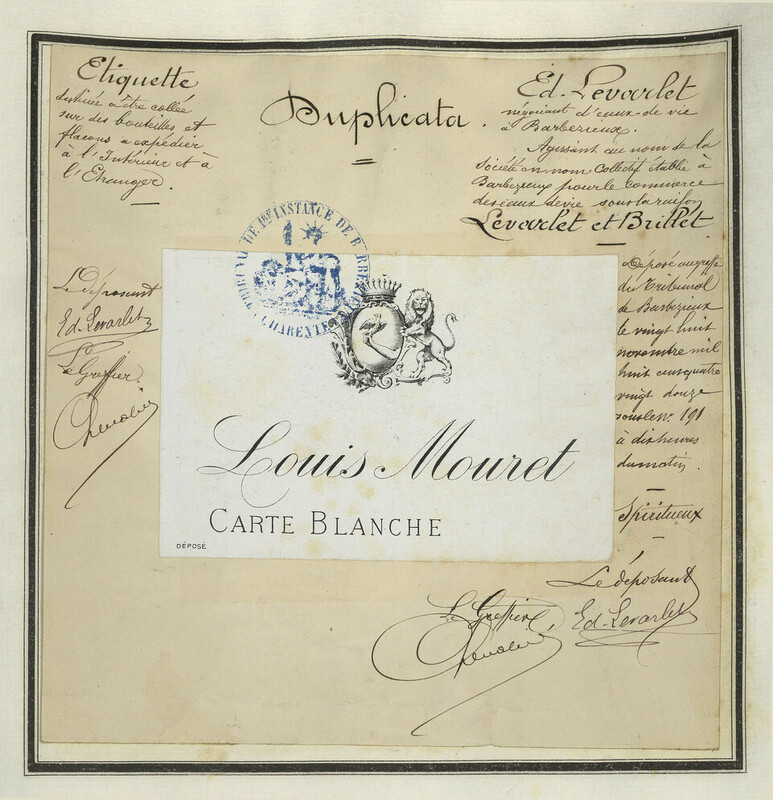 Etiquette
destinée à être collée
sur des bouteilles et
flacons à expédier
à l'Intérieur et à
l'Etranger.
Duplicata.
Ed. Levarlet
négociant d'eaux-de-vie
à Barbezieux.
Agissant au nom de la
Société en nom Collectif établie à
Barbezieux pour le Commerce
des eaux de vie sous la raison
Levarlet et Brillet
TRIBUNAL DE 1RE INSTANCE DE BARBEZIEUX
CHARENTE
Le déposant
Ed. Levarlet
Le Greffier
Déposé au greffe
du Tribunal
de Barbezieux
le vingt huit
novembre mil
huit cent quatre
vingt douze
sous le no. 191
à dix heures
du matin.
Spiritueux
Louis Mouret
CARTE BLANCHE
DÉPOSÉ
Le déposant
Ed. Levarlet
Le Greffier